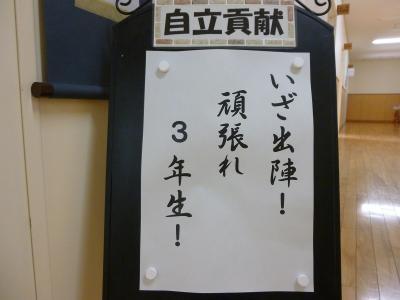 自立貢献
いざ出陣！
頑張れ
３年生！